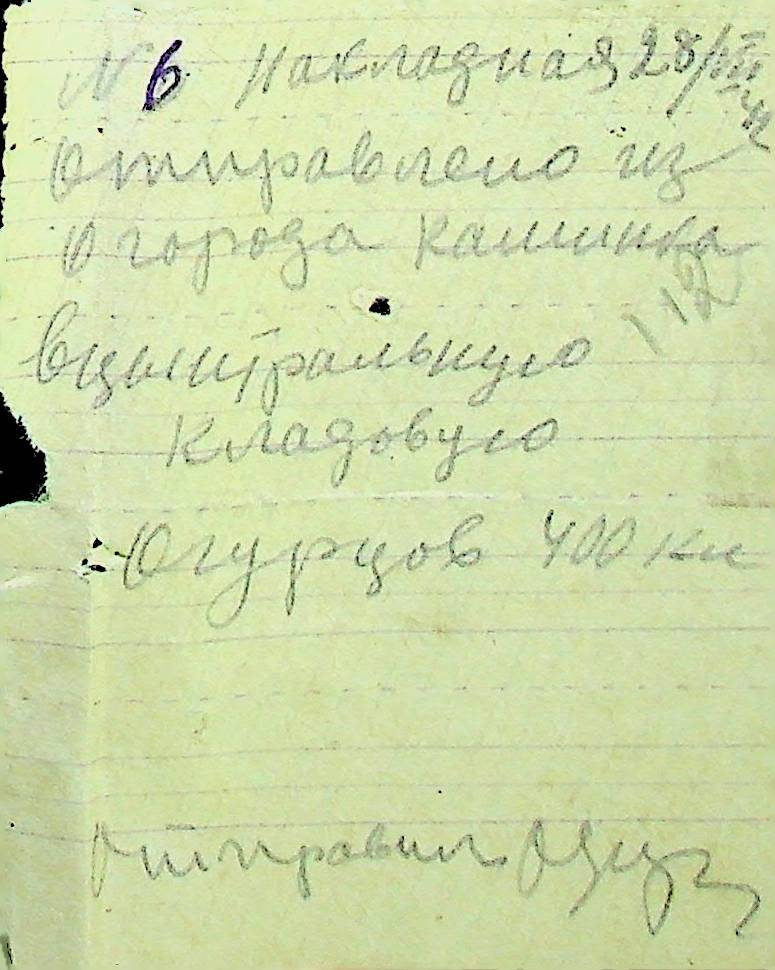 N 6 Накладная 28/VIII
Отправлено из
Огорода Камышка
112
вцынтральную
Кладовую
Огурцов 400 кг
Отправил